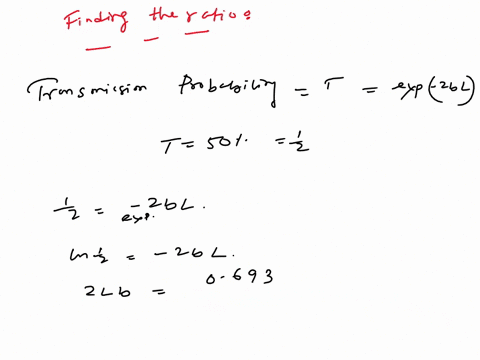 Finding the ratio:
Transmission Probability = T = exp(-2bL)
T = 50% = 1/2
1/2 = exp. -2bL.
ln 1/2 = -2bL.
2Lb = 0.693